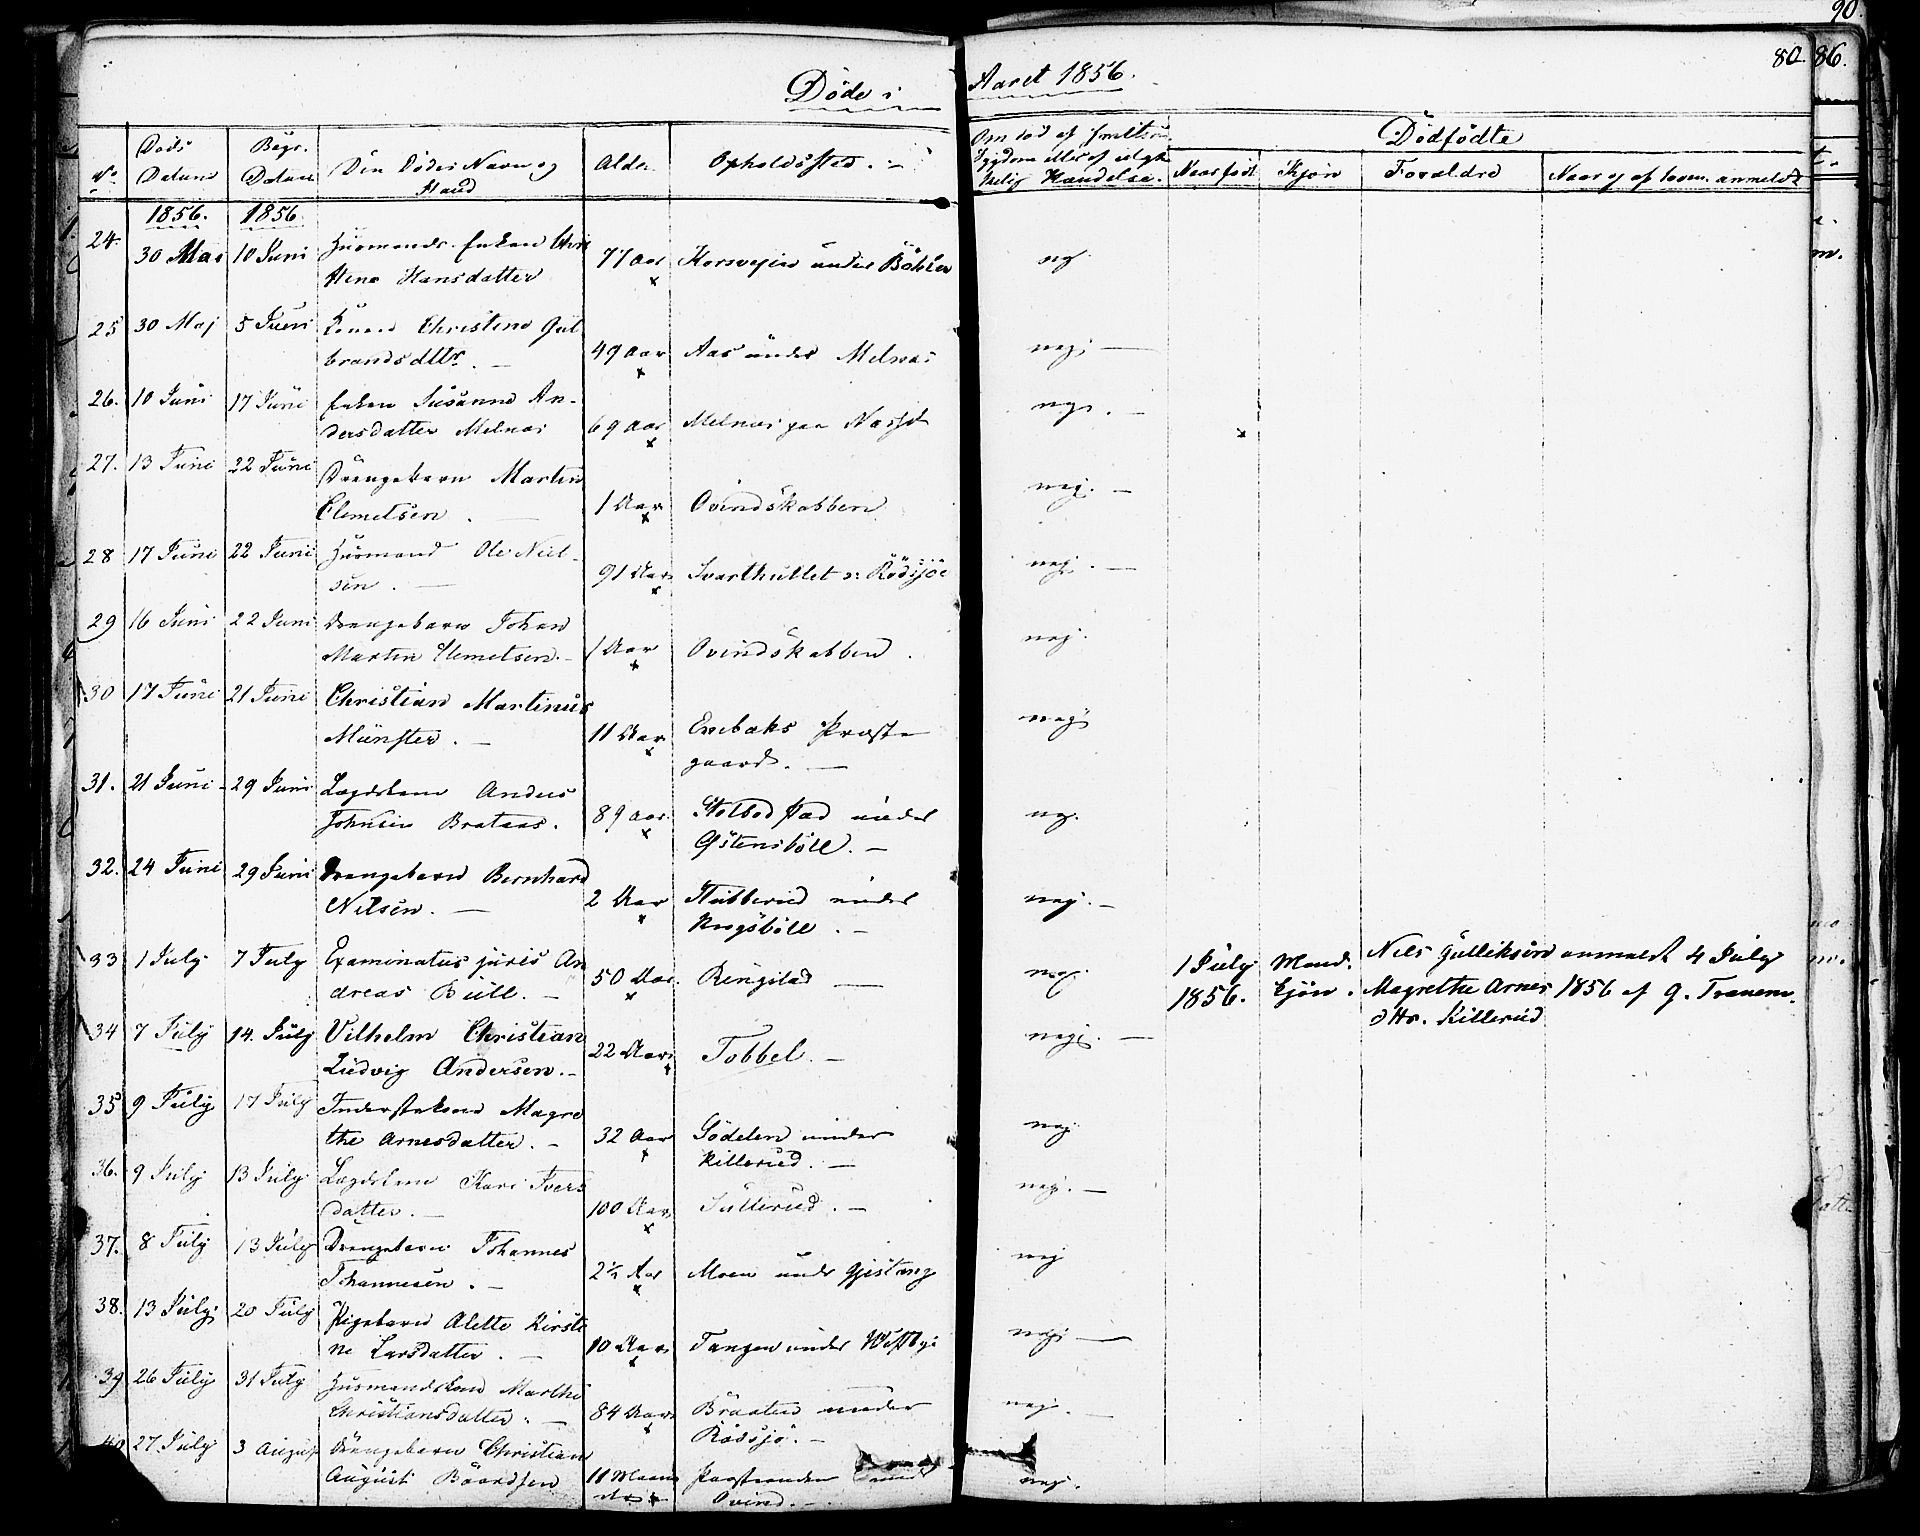 90
Döde i Aaret 1856.
80 86.
No
Döds Datum
Begr. Datum
Den Dödes Navn og Stand
Alder
Opholdssted.
Om död af smitsom Sygdom eller af ulyk kelig Hændelse.
Dödfödte
Naar född
Kjön
Forældre
Naar og af hvem anmeldt
1856. 1856
24. 30 Mai 10 Juni Husmands Enken Chri
stene Hansdatter 77 Aar Korsvejen under Böhler nej
25 30 Maj 5 Juni Konen Christine Gul
brandsdttr. 49 Aar Aas under Melnæs nej
26. 10 Juni 17 Juni Enken Susanne An-
dersdatter Melnæs 69 Aar Melnæs paa Næsset nej.
27. 13 Juni 22 Juni Drengebarn Martin
Clemetsen. 1 Aar Ovindskabben nej.
28 17 Juni 22 Juni Husmand Ole Niel-
sen. 91 Aar Svarthullet u: Rödsjöe nej.
29 16 Juni 22 Juni Drengebarn Johan
Martin Clemetsen. 1 Aar Ovindskabben. nej.
30 17 Juni 21 Juni Christian Martinus
Münster. 11 Aar Enebaks Præste
gaard. nej
31. 21 Juni 29 Juni Lægdslem Anders
Johnsen Brataas. 89 Aar Stolbodstad under
Gstensböll. nej.
32. 24 Juni 29 Juni Drengebarn Bernhard
Nilsen. 2 Aar Stubberud under
Krogsböll. nej.
33 1 July 7 July Examinatus juris An
dreas Bull. 50 Aar. Ringstad nej.
1 July 1856. Mand. kjön. Nils Gulliksen Magrethe Arnes dttr. Killerud anmeldt 4 July 1856 af G. Tranem.
34 7 July 14. July Vilhelm Christian
Ludvig Andersen. 22 Aar Tobbel. nej.
35 9 July 17 July Inderstekone Magre
the Arnesdatter. 32 Aar Södelen under
Killerud. nej
36. 9 July 13 July Lægdslem Kari Ivers
datter. 100 Aar Sullerud. nej.
37. 8 July 13 July Drengebarn Johannes
Johannesen. 2½ Aar Moen under Gjestang nej
38. 13 July 20 July Pigebarn Alette Kirste
ne Larsdatter. 10 Aar Tangen under Westbye nej
39 26 July 31 July Husmandskone Marthe
Christiansdatter. 84 Aar Braaten under
Rödsjö. nej.
40 27 July 3 August Drengebarn Christian
August Baardsen 11 Maane
der Præstranden under
Ovind. nej.